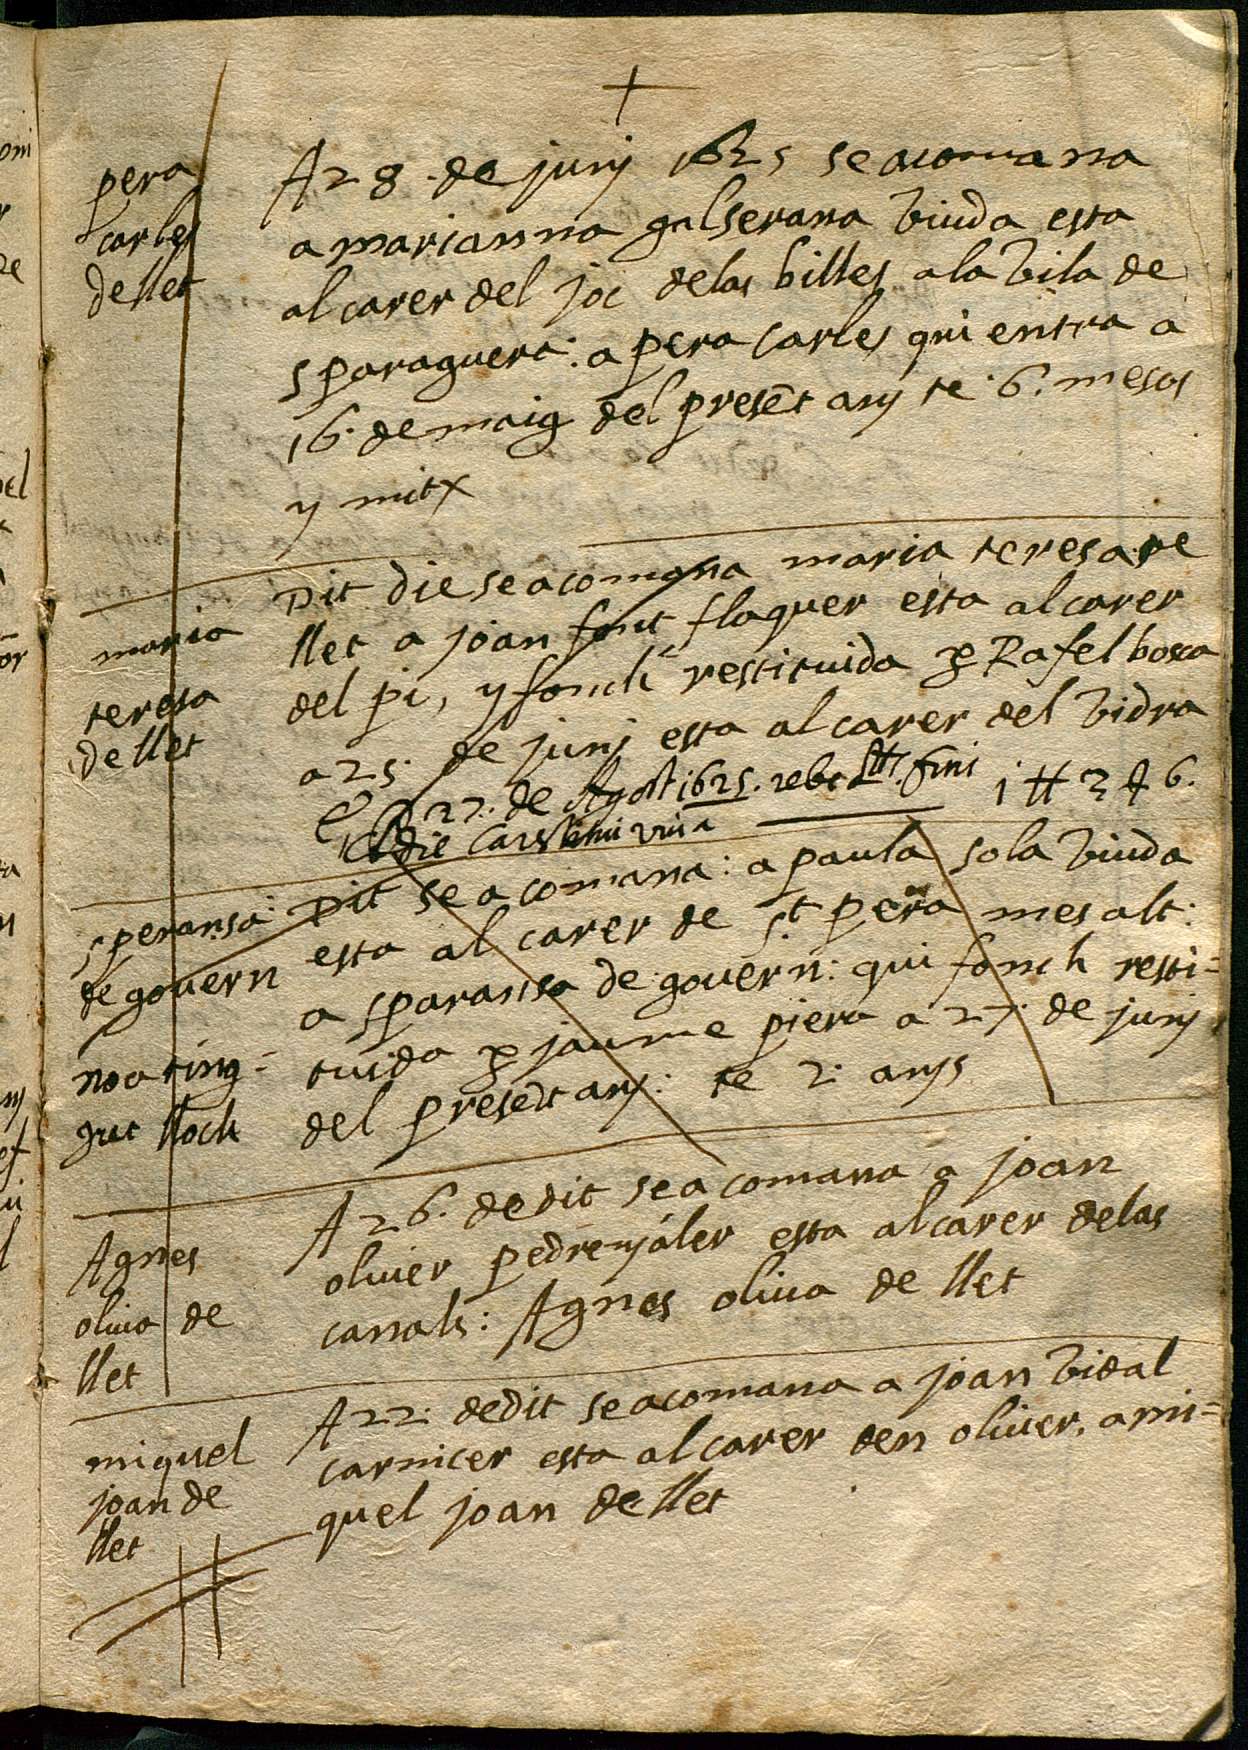 pera
carles
de llet
A 28 de juny 1625 se acomana
a marianna galserana viuda esta
al carer del joc delas billes a la vila de
sparaguera: a pera carles qui entra a
16. de maig del preset any te 6. mesos
y mitx
maria
teresa
de llet
Dit die se acomana maria teresa de
llet a joan font flaquer esta al carer
del pi, y fonch restituida p Rafel bosca
a 25. de juny esta al carer del vidra
A 27. de Agost 1625. rebe fins 1 # 2 6.
speransa
de govern
no a ting=
gut lloch
Dit se acomana: a paula sola viuda
esta al carer de st pera mes alt:
a sparansa de govern: qui fonch resti=
tuida p jaume piera a 27. de juny
del preset any: te 2. anys
Agnes
oliva de
llet
A 26. de dit se acomana a joan
oliver pedrenyaler esta al carer delas
canals: Agnes oliva de llet
miquel
joan de
llet
A 22. de dit se acomana a joan vidal
carnicer esta al carer den oliver, a mi=
quel joan de llet